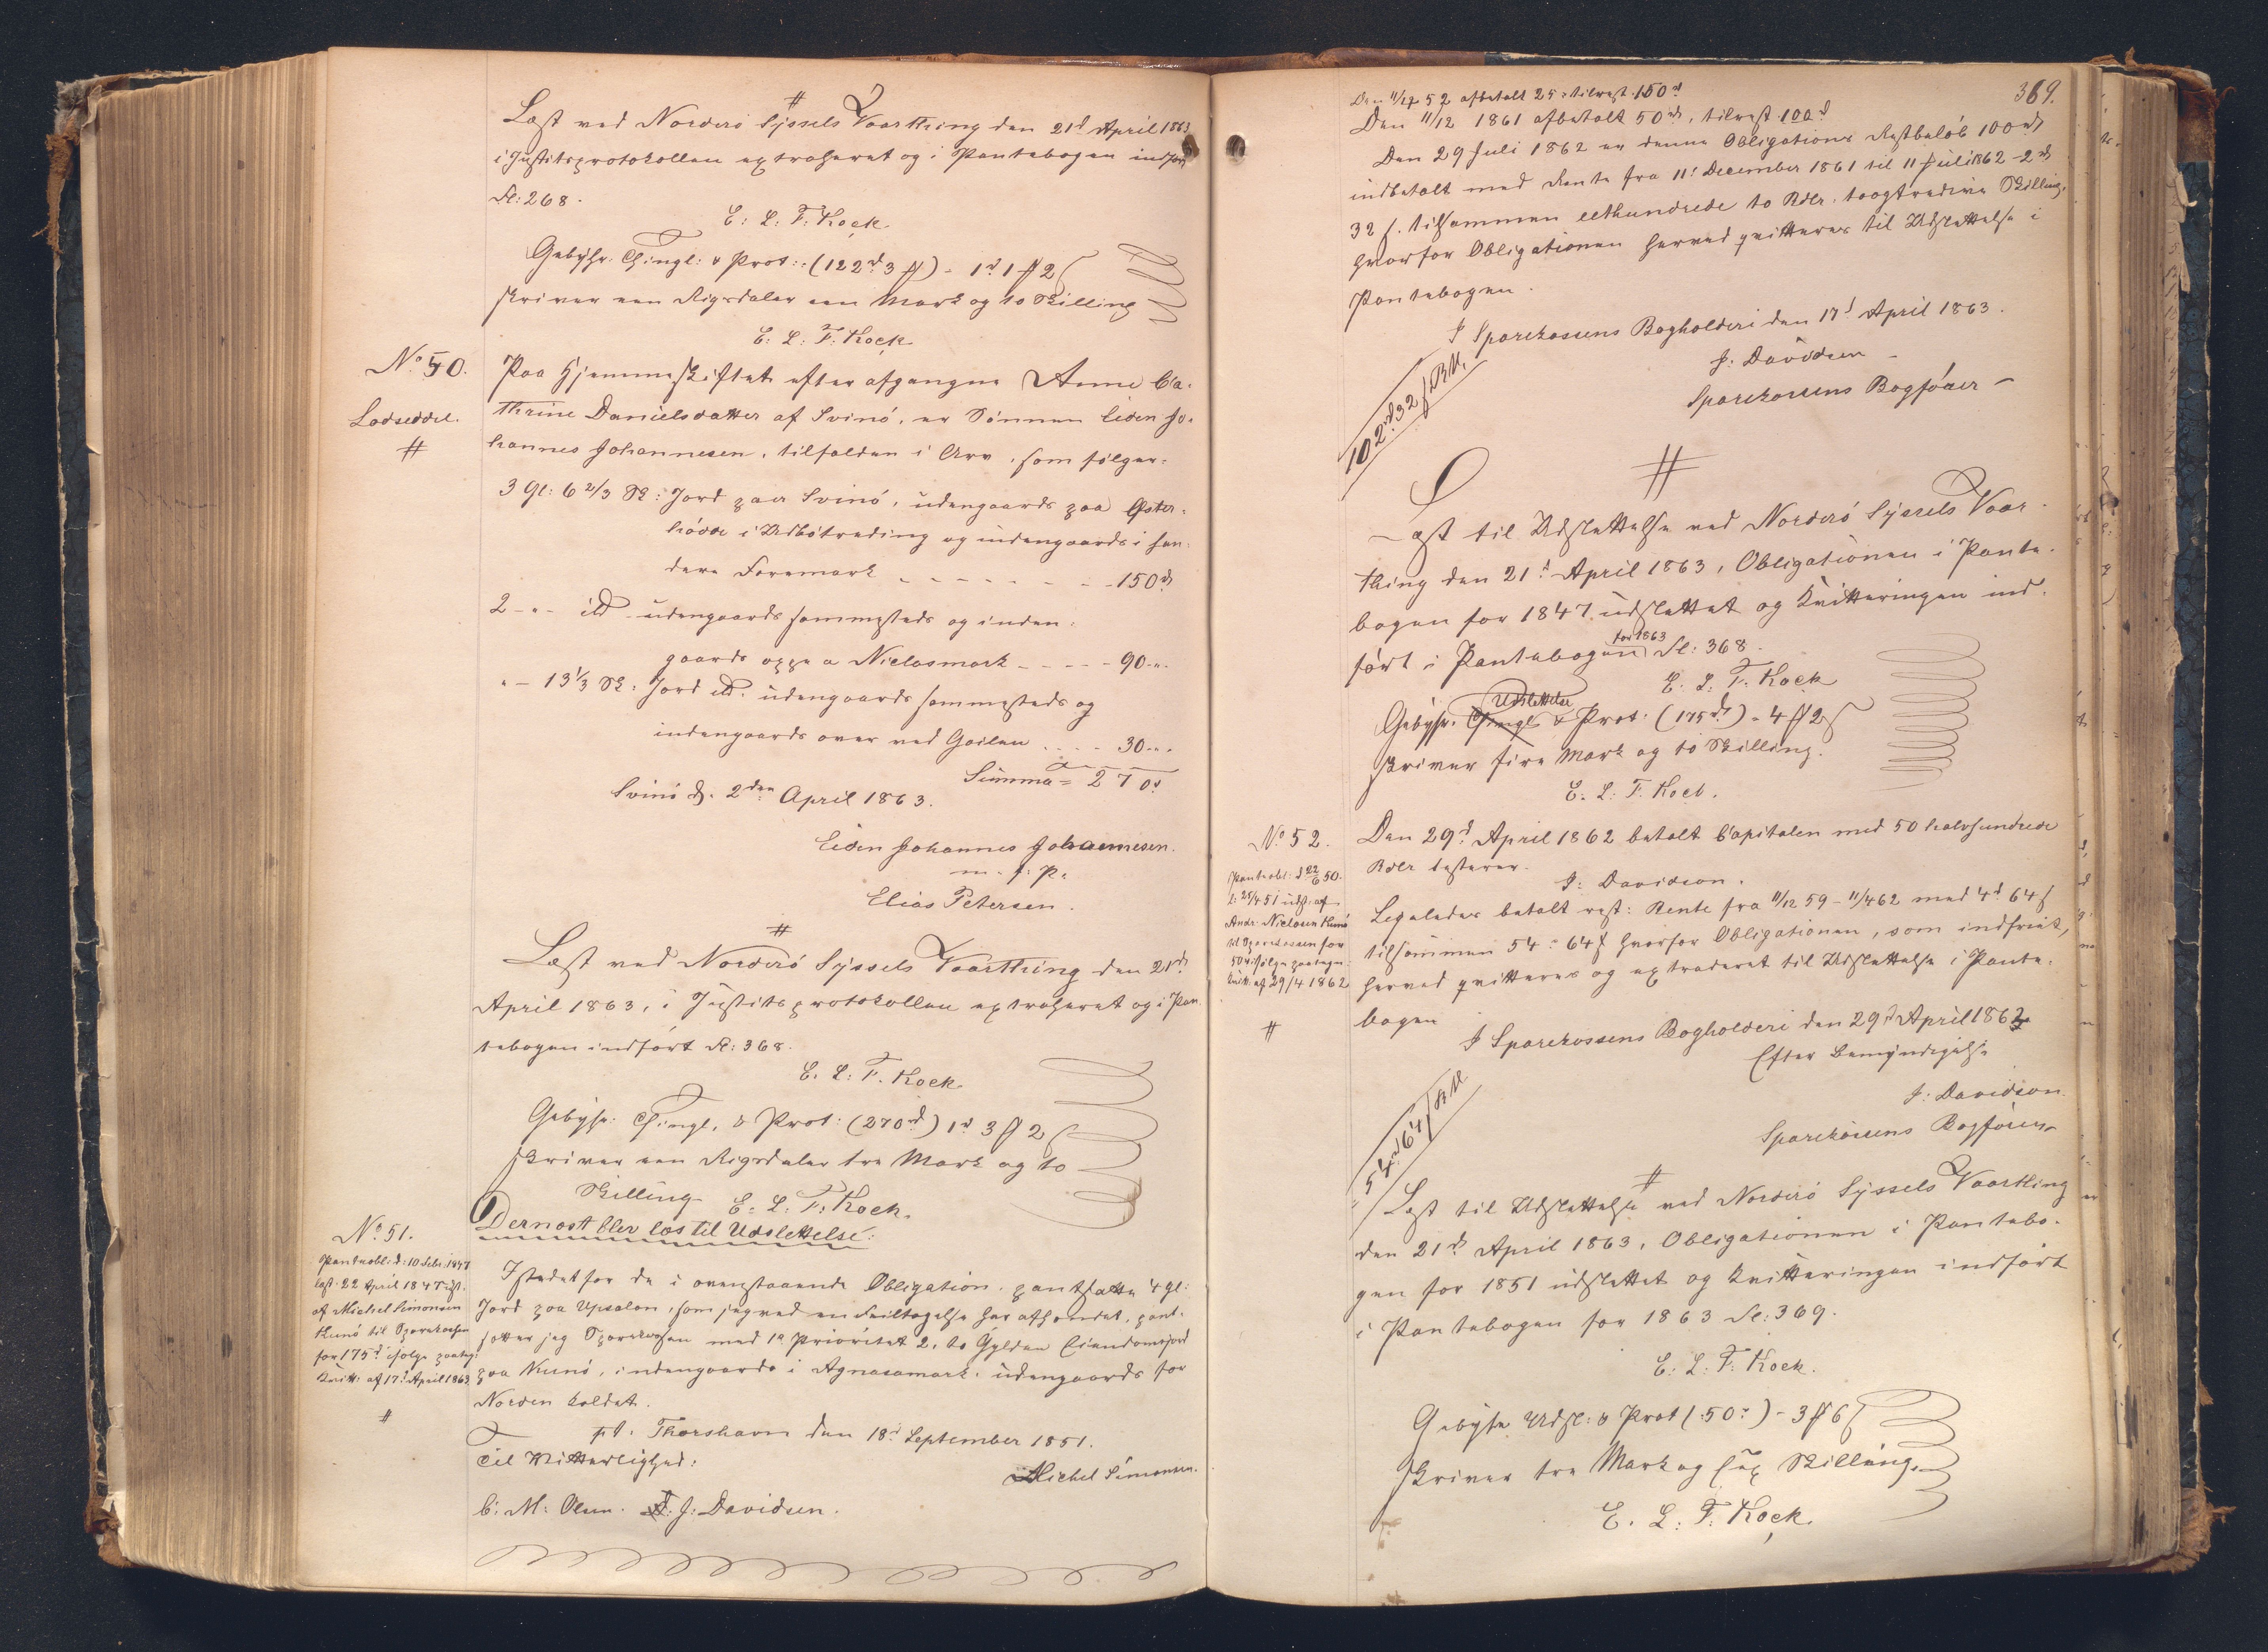 #
Læst ved Norderø Syssels Vaarthing den 21d April 1863
i Justitsprotokollen extraheret og i Pantebogen indført
Fl: 268.
E: L: F: Kock
Gebyhr. Thingl: & Prot:: (122rd 3 ) - 1rd 1 2
skriver een Rigsdaler een Mark og to Skilling
E: L: F: Kock
No 50.
Lodseddel.
#
Paa Hjemmeskiftet efter afgangne Anne Ca-
thrine Danielsdatter af Svinø, er Sønnen Eiden Jo-
hannes Johannesen, tilfalden i Arv, som følger:
3 Gl: 6 2/3 Sk: Jord paa Svinø, udengaards paa Øster-
høvde i Udbøtrading og indengaards i
dere Foremark - - - - - - - 150rd
2 - " - id udengaards sammesteds og inden-
gaards oppe a Niclasmark - - - - - 90 - " -
" - 13 1/3 Sk: Jord id. udengaards sammesteds og
indengaards over ved Goilen . . . . 30 - " -
Summa = 270rd
Svinø d. 2den April 1863.
Eiden Johannes Johannesen.
m. f: P.
Elias Petersen.
#
Læst ved Norderø Syssels Vaarthing den 21d
April 1863, i Justitsprotokollen extraheret og i Pan
tebogen indført Fl: 368.
E. L: F. Kock
Gebyhr. Thingl. & Prot: (270rd) 1rd 3 2
skriver een Rigsdaler tre Mark og to
Skilling E: L: F: Kock.
Dernæst blev læs til Udslettelse:
No 51.
Pantobl: d: 10 Febr. 1847
læst 22 April 1847 udst.
af Michel Simonsen
Kunø til Sparekassen
for 175d ifølge paateg:
Kvitt: af 17d April 1863
#
Istedetfor de i ovenstaaende Obligation, pantsatte 4 gl:
Jord paa Upsalon, som jeg ved en Feiltagelse har afhændet, pant-
sætter jeg Sparekassen med 1e Prioritet 2, to Gylden Eiendomsjord
paa Kunø, indengaards i Agnasamark, udengaards for
Norden kaldet.
pt. Thorshavn den 18d September 1851.
Til Vitterlighed:
Michel Simonsen.
C: M: Olsen. J: Davidsen.
369.
Den 11/12 52 afbetalt 25 " tilrest 150rd
Den 11/12 1861 afbetalt 50rd, tilrest 100rd
Den 29 Juli 1862 er denne Obligations Restbeløb 100rd
indbetalt med Rente fra 11' December 1861 til 11 Juli 1862 - 2rd
32 s. tilsammen eethundrede to Rdlr. toogtredive Skilling,
hvorfor Obligationen herved qvitteres til Udslettelse i
Pantebogen.
I Sparekassens Bogholderi den 17d April 1863.
J: Davidsen
Sparekassens Bogfører
102rd 32 s RM.
#
Læst til Udslettelse ved Norderø Syssels Vaar-
thing den 21d April 1863, Obligationen i Pante-
bogen for 1847 udslettet og Kvitteringen ind-
ført i Pantebogen for 1863 Fl: 368.
E. L: F. Kock
Gebyhr. Thingl Udslettelse & Prot. (175rd) - 4 2
skriver fire Mark og to Skilling.
E. L: F. Kock.
No 52.
Pantobl: d 22/6 50.
l: 25/4 51 udst. af
Andr: Niclasen Kunø
til Sparekassen for
50rd ifølge paategn:
Kvitt. af 29/4 1862
#
Den 29d April 1862 betalt Capitalen med 50 halvhundrede
Rdlr testerer.
J: Davidson.
Ligeledes betalt rest: Rente fra 11/12 59 - 11/4 62 med 4d 64 s
tilsammen 54 " 64 s hvorfor Obligationen, som indfriet,
herved qvitteres og extraderet til Udslettelse i Pante-
bogen
I Sparekassens Bogholderi den 29d April 1862
Efter Bemyndigelse
J: Davidson.
Sparekassens Bogfører
54rd 64 s RM
#
Læst til Udslettelse ved Norderø Syssels Vaarthing
den 21d April 1863, Obligationen i Pantebo-
gen for 1851 udslettet og Kvitteringen indført
i Pantebogen for 1863 Fl: 369.
E: L: F: Kock.
Gebyhr Udsl: & Prot (50rd) - 3 6
skriver tre Mark og sex Skilling.
E. L: F: Kock